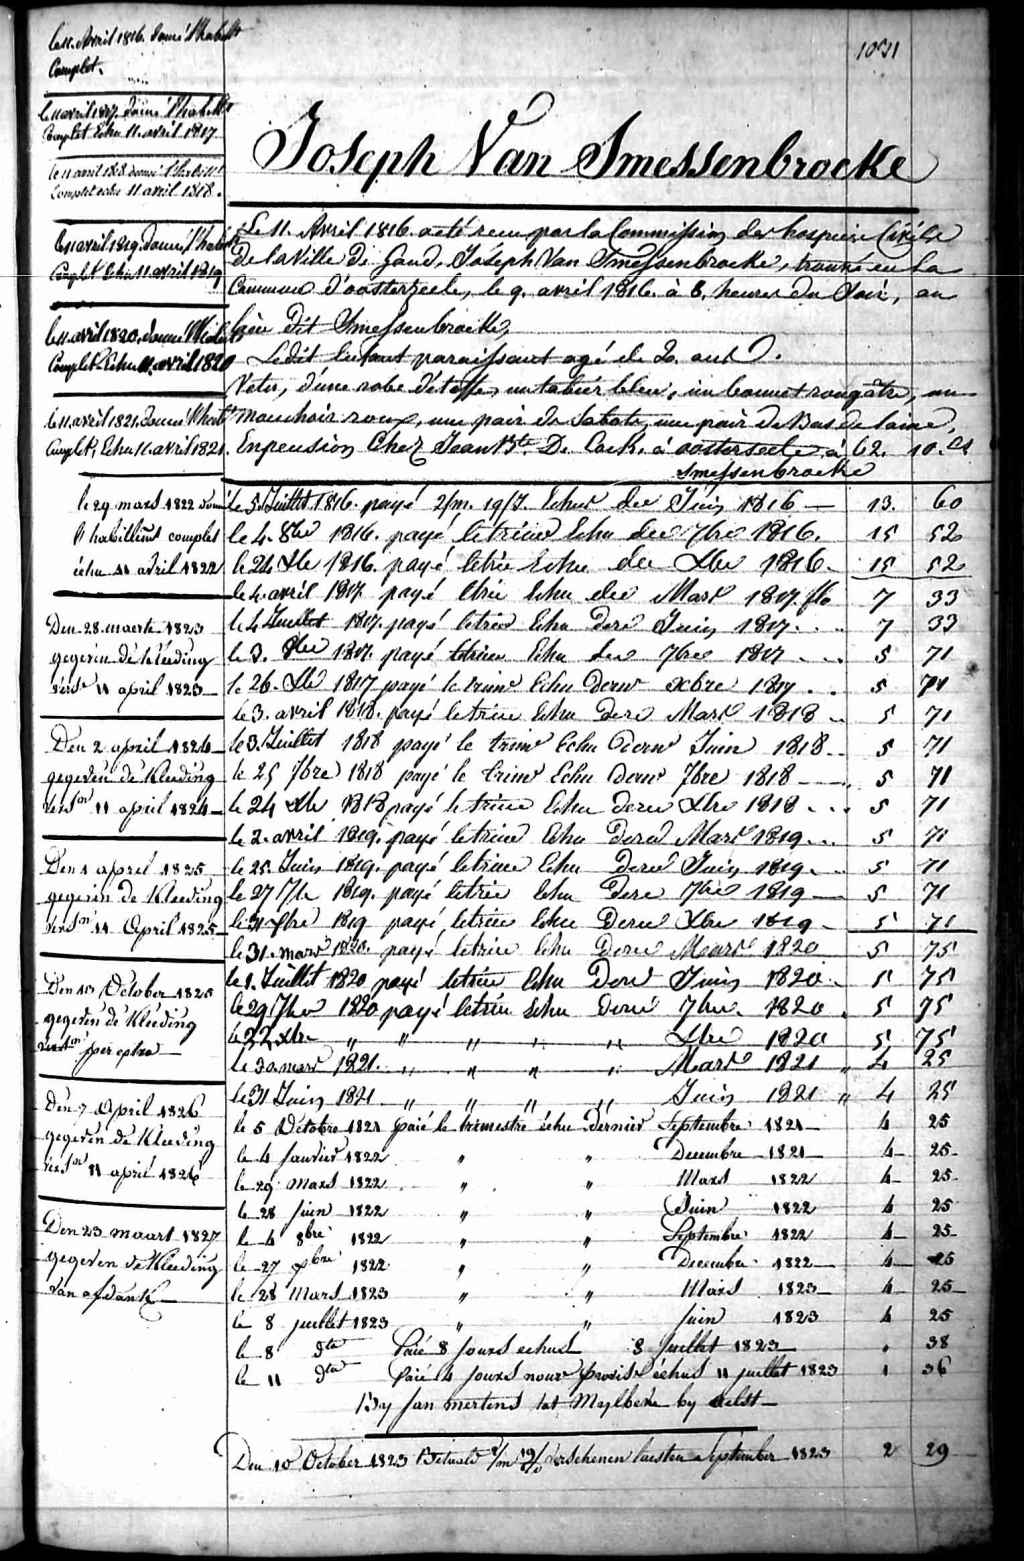 1031
Joseph Van Smessenbrocke
Le 11. Avril 1816. a été recu par la Commission des hospices Civils
De la Ville De Gand, Joseph Van Smessenbrocke, trouvé en la
Commune d'oosterzeele, le 9. avril 1816. à 8. heures du Soir, au
lieu dit Smessenbrocke,
Ledit Enfant paraissant agé de 2. ans.
Vetu, d'une robe d'étoffe, un tablier bleu, un bonnet rougâtre, un
mouchoir roux, une pair de Sabots, une pair de Bas de laine,
En pension Chez Jean Bte. De Cock, à oosterseele à 62. 10. Cs
Smessenbrocke
le 5. Juillet 1816. payé 2/m. 19/J. Echus de Juin 1816 — 13. 60
le 4. 8bre 1816. payé le trime Echu de 7bre 1816. 15 52
le 24 Xbre 1816. payé le trim Echu de Xbre 1816. 15 52
le 4 avril 1817. payé trim Echu de Mars 1817. flo 7 33
le 4 Juillet 1817. payé le trim Echu der Juin 1817. 7 33
le 3. 8bre 1817. payé le trim Echu de 7bre 1817 5 71
le 26. Xbre 1817 payé le trime Echu dernr Xbre 1817 5 71
le 3. avril 1818. payé le trim Echu der Mars 1818 5 71
le 3. Juillet 1818 payé le trimr Echu dernr Juin 1818 5 71
le 25 7bre 1818 payé le trimr Echu dernr 7bre 1818 5 71
le 24 Xbre 1818 payé le trime Echu derer Xbre 1818 5 71
le 2. avril 1819. payé le trime Echu derer Mars 1819 5 71
le 25. Juin 1819. payé le trime Echu der Juin 1819. 5 71
le 27 7bre 1819. payé le trim Echu der 7bre 1819 5 71
le 31 Xbre 1819 payé le trime Echu derer Xbre 1819 5 71
le 31. mars 1820. payé le trim Echu derer Mars 1820 5 75
le 1. Juillet 1820 payé le trim Echu der Juin 1820 5 75
le 29 7bre 1820 payé le trim Echu der 7bre 1820 5 75
le 22 Xbre " " " " Xbre 1820 5 75
le 30 mars 1821. " " " " Mars 1821 " 4 25
le 31 Juin 1821 " " " " Juin 1821 " 4 25
le 5 Octobre 1821 paié le trimestre échu dernier Septembre 1821 4 25
le 4 Janvier 1822 " " Decembre 1821 4 25
le 29 Mars 1822 " " Mars 1822 4 25
le 28 Juin 1822 " " Juin 1822 4 25
le 4 8bre 1822 " " Septembre 1822 4 25
le 27 Xbre 1822 " " Decembre 1822 4 25
le 28 Mars 1823 " " Mars 1823 4 25
le 8 juillet 1823 " " Juin 1823 4 25
le 8 dto Paié 8 jours echus 8 juillet 1823 " 38
le 11 dto Paié 4 jours échus 11 juillet 1823 1 36
By Jan mertens tot Meylbeke by aelst
Den 10 October 1823 Betaeld 2/m 19/d verschenen laesten September 1823 2 29
le 11. Avril 1816. donné l'habillt
Complet.
le 11 avril 1817. donné l'habillt
Complet Echu 11. avril 1817
le 11 avril 1818 donné l'habillt
Complet echu 11 avril 1818.
le 11 avril 1819. donné l'habillt
Complet Echu 11 avril 1819
le 11. avril 1820. donné l'habillt
Complet Echu 11. avril 1820
le 11. avril 1821. donné l'habillt
Complet, Echu 11. avril 1821.
le 29 mars 1822 donné
l'habillemt complet
échu 11 avril 1822
Den 28 maerte 1823
gegeven de kleeding
11 april 1823
Den 2 april 1824
gegeven de Kleeding
11 april 1824
Den 1 april 1825
gegeven de Kleeding
11 April 1825
Den 10 October 1825
gegeven de Kleeding
per extra
Den 7 April 1826
gegeven de Kleeding
11 april 1826
Den 23 maart 1827
gegeven de Kleeding
van afdank